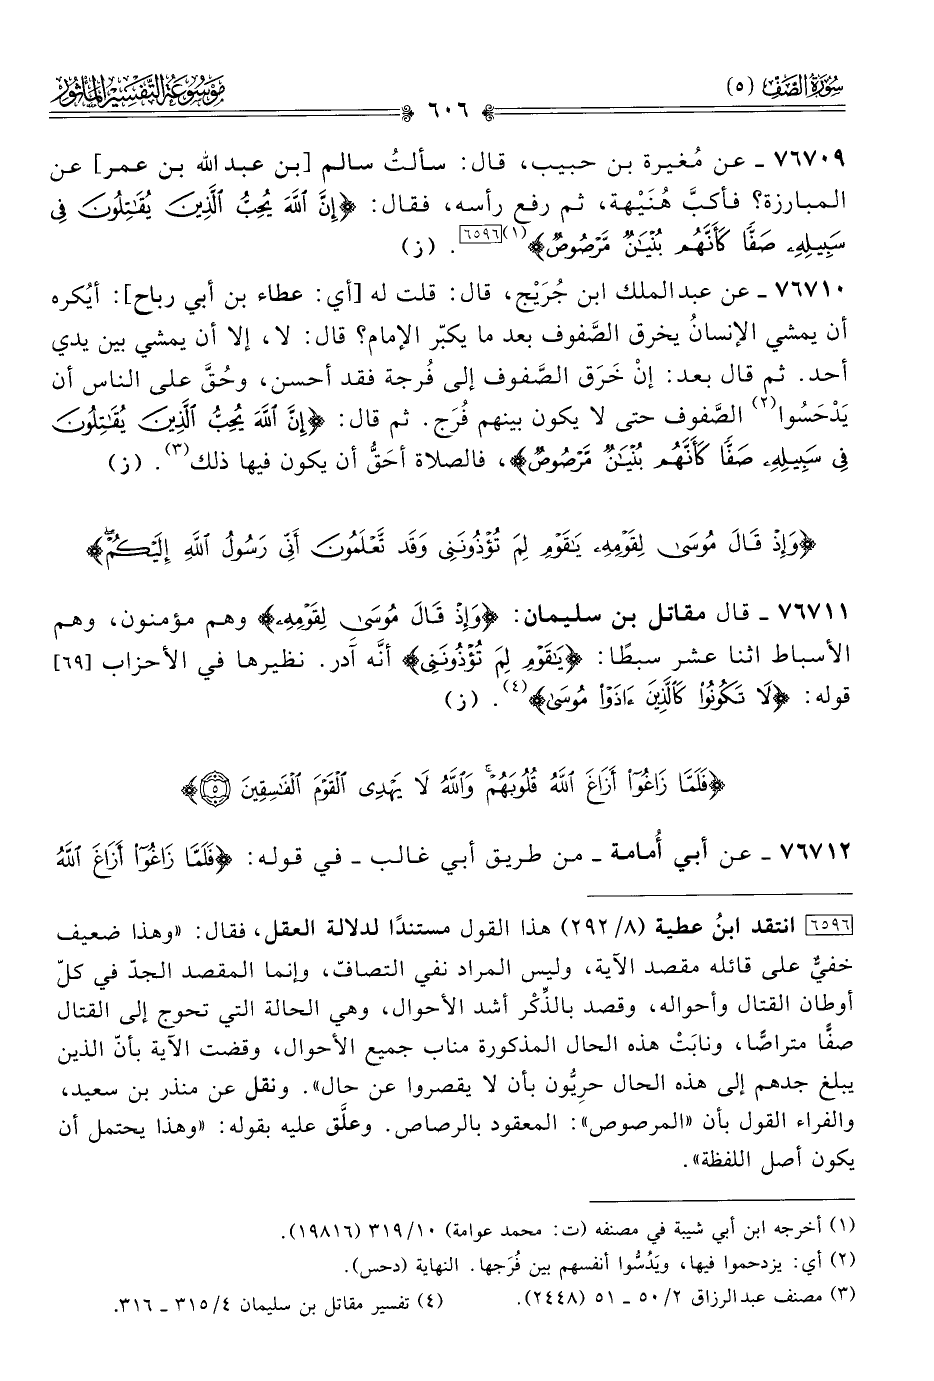 سُورَةُ الصَّفِّ (٥)
٦٠٦
مَوْسُوعَةُ التَّفْسِيرِ المَأْثُورِ
٧٦٧٠٩ ـ عن مُغيرة بن حبيب، قال: سألتُ سالم [بن عبد الله بن عمر] عن
المبارزة؟ فأكبَّ هُنَيْهة، ثم رفع رأسه، فقال: ﴿إِنَّ ٱللَّهَ يُحِبُّ ٱلَّذِينَ يُقَٰتِلُونَ فِى
سَبِيلِهِۦ صَفًّا كَأَنَّهُم بُنْيَٰنٌ مَّرْصُوصٌ﴾(١)[٦٥٩٦]. (ز)
٧٦٧١٠ ـ عن عبد الملك ابن جُرَيْج، قال: قلت له [أي: عطاء بن أبي رباح]: أيُكره
أن يمشي الإنسانُ يخرق الصَّفوف بعد ما يكبّر الإمام؟ قال: لا، إلا أن يمشي بين يدي
أحد. ثم قال بعد: إنْ خَرَق الصَّفوف إلى فُرجة فقد أحسن، وحُقَّ على الناس أن
يَدْحَسُوا(٢) الصَّفوف حتى لا يكون بينهم فُرَج. ثم قال: ﴿إِنَّ ٱللَّهَ يُحِبُّ ٱلَّذِينَ يُقَٰتِلُونَ
فِى سَبِيلِهِۦ صَفًّا كَأَنَّهُم بُنْيَٰنٌ مَّرْصُوصٌ﴾، فالصلاة أحَقُّ أن يكون فيها ذلك(٣). (ز)
﴿وَإِذْ قَالَ مُوسَىٰ لِقَوْمِهِۦ يَٰقَوْمِ لِمَ تُؤْذُونَنِى وَقَد تَّعْلَمُونَ أَنِّى رَسُولُ ٱللَّهِ إِلَيْكُمْ ۖ﴾
٧٦٧١١ ـ قال مقاتل بن سليمان: ﴿وَإِذْ قَالَ مُوسَىٰ لِقَوْمِهِۦ﴾ وهم مؤمنون، وهم
الأسباط اثنا عشر سبطًا: ﴿يَٰقَوْمِ لِمَ تُؤْذُونَنِى﴾ أنَّه آدَر. نظيرها في الأحزاب [٦٩]
قوله: ﴿لَا تَكُونُوا۟ كَٱلَّذِينَ ءَاذَوْا۟ مُوسَىٰ﴾(٤). (ز)
﴿فَلَمَّا زَاغُوٓا۟ أَزَاغَ ٱللَّهُ قُلُوبَهُمْ ۚ وَٱللَّهُ لَا يَهْدِى ٱلْقَوْمَ ٱلْفَٰسِقِينَ ۝٥﴾
٧٦٧١٢ ـ عن أبي أُمامة ـ من طريق أبي غالب ـ في قوله: ﴿فَلَمَّا زَاغُوٓا۟ أَزَاغَ ٱللَّهُ
[٦٥٩٦] انتقد ابنُ عطية (٨/ ٢٩٢) هذا القول مستندًا لدلالة العقل، فقال: «وهذا ضعيف
خفيٌّ على قائله مقصد الآية، وليس المراد نفي التصافّ، وإنما المقصد الجدّ في كلّ
أوطان القتال وأحواله، وقصد بالذِّكْر أشد الأحوال، وهي الحالة التي تحوج إلى القتال
صفًّا متراصًّا، ونابَتْ هذه الحال المذكورة مناب جميع الأحوال، وقضت الآية بأنّ الذين
يبلغ جدهم إلى هذه الحال حرِيُّون بأن لا يقصروا عن حال». ونقل عن منذر بن سعيد،
والفراء القول بأن «المرصوص»: المعقود بالرصاص. وعلَّق عليه بقوله: «وهذا يحتمل أن
يكون أصل اللفظة».
(١) أخرجه ابن أبي شيبة في مصنفه (ت: محمد عوامة) ١٠/ ٣١٩ (١٩٨١٦).
(٢) أي: يزدحموا فيها، ويَدُسُّوا أنفسهم بين فُرَجها. النهاية (دحس).
(٣) مصنف عبد الرزاق ٢/ ٥٠ ـ ٥١ (٢٤٤٨). (٤) تفسير مقاتل بن سليمان ٤/ ٣١٥ ـ ٣١٦.